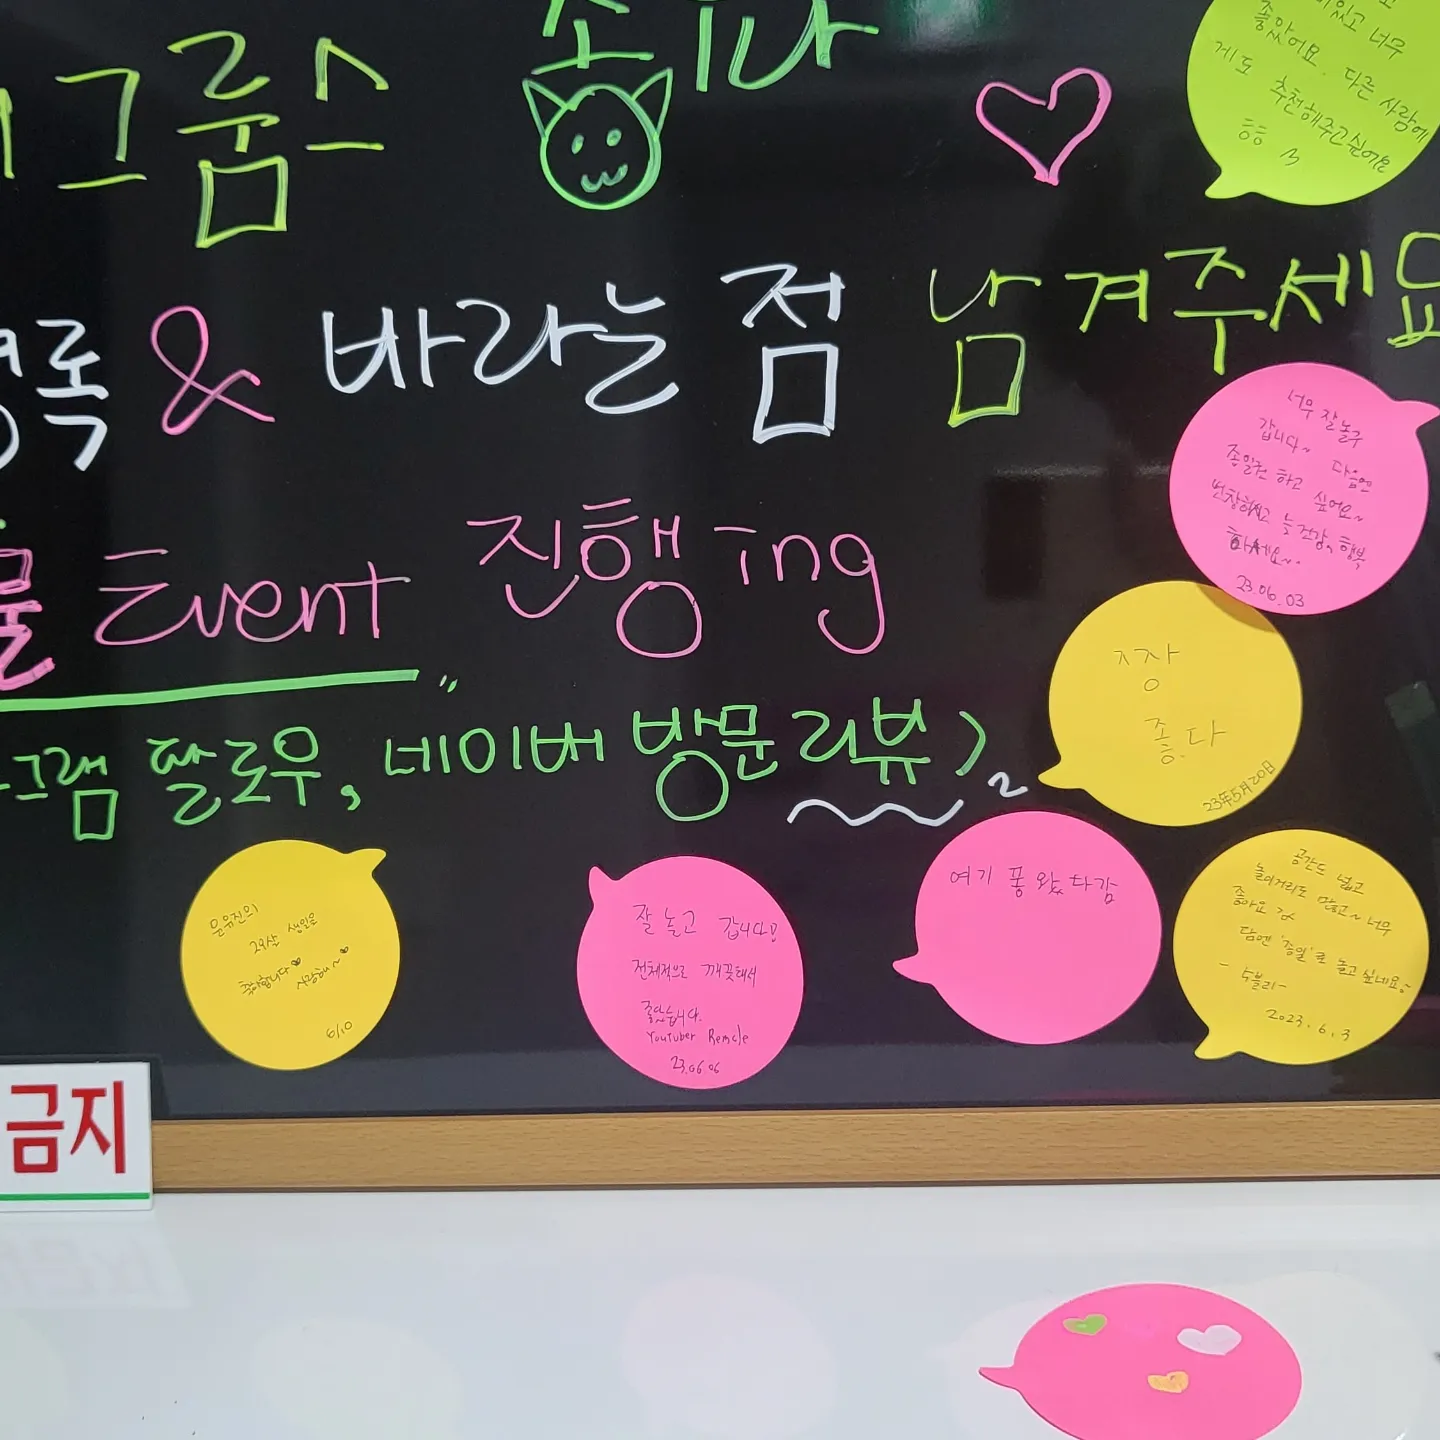 그룸스
바라는 점 남겨주세요
록 &
Event 진행 ing
그램 팔로우, 네이버 방문리뷰 >
있고 너무
좋았어요. 다른 사람에
게도 추천해주고싶어요
ㅎㅎ
너무 잘놀구
갑니다~ 다음엔
종일권 하고 싶어요~
번창하시고 늘 건강, 행복
하세요~
23.06.03
징장
좋다
23年5月20日
문유진의
29살 생일은
축하합니다 사랑해~
6/10
잘 놀고 갑니다!
전체적으로 깨끗해서
좋았습니다.
YouTuber Remcle
23.06.06
여기 퐁 왔다감
공간도 넓고
놀이거리도 많고~ 너무
좋아요
담엔 '종일'로 놀고싶네요~
- 수블리 -
2023. 6. 3
금지